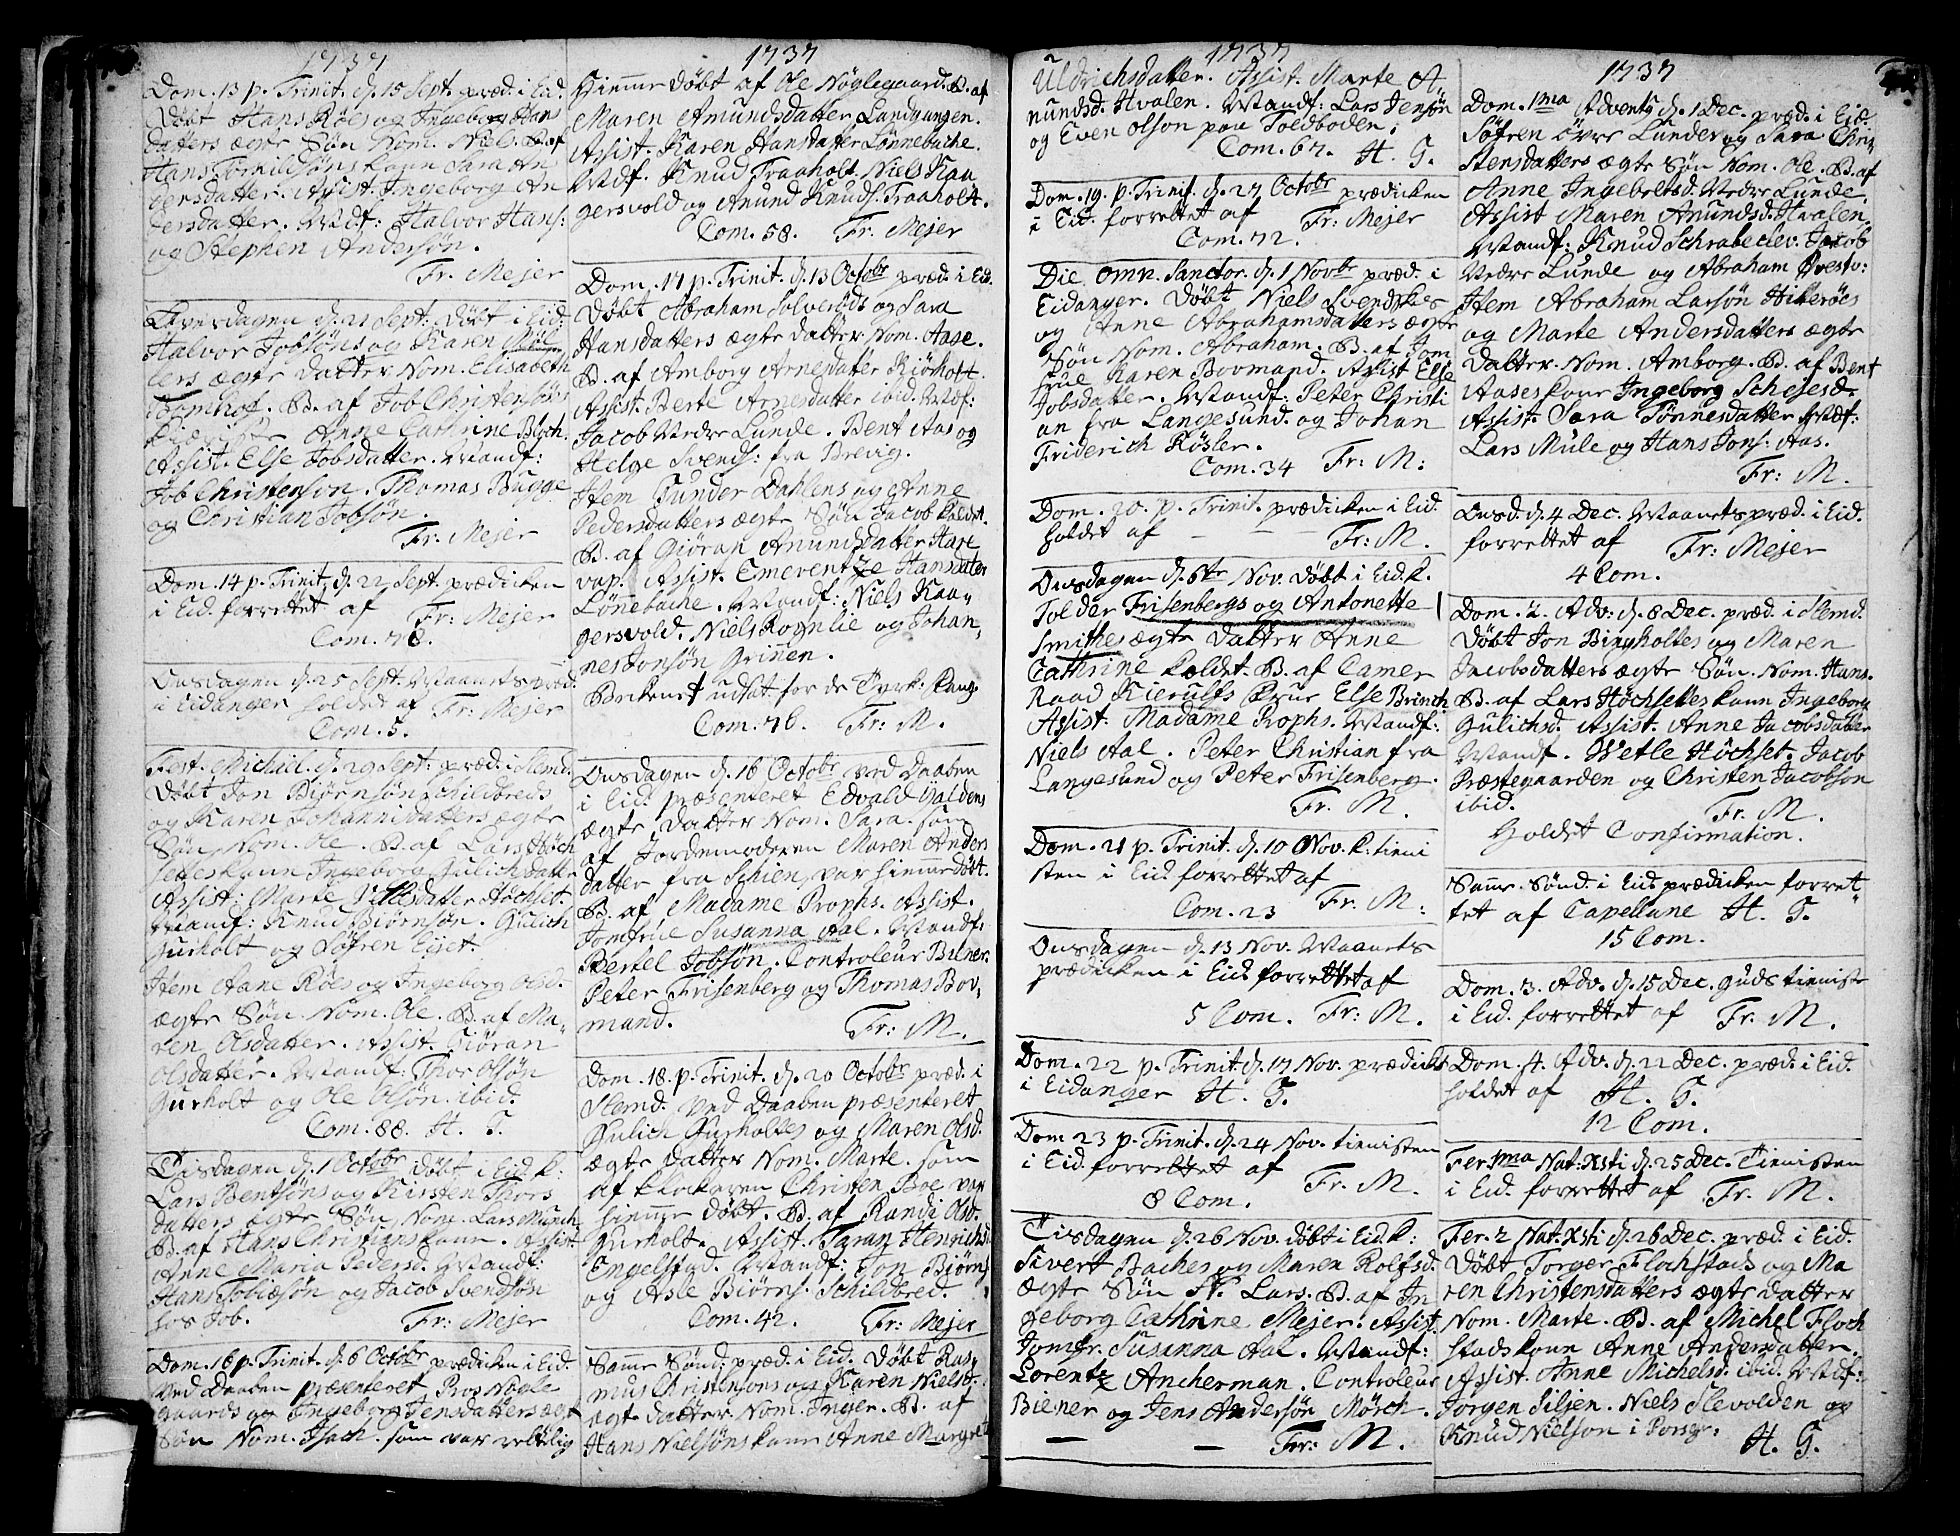 1737
Dom. 13 p. Trinit. d. 15 Sept. præd. i Eid.
Døbt Hans Röes og Ingeborg Hans
datters ægte Søn Nom. Niels. B. af
Hans Torkildsøns kone Sara An
dersdatter. Assist. Ingeborg An
dersdatter. Vidf: Halvor Hans:
og Stephen Andersøn.
Fr. Mejer
Løverdagen d. 21 Sept: døbt i Eid:
Halvor Jobsøns og Karen
lers ægte datter Nom. Elisabeth
Tomhof. B. af Job Christensøns
Anne Cathrine Bloch.
Assist. Else Jobsdatter. Vandf:
Job Christensøn. Thomas Bugge
og Christian Jobsøn.
Fr: Mejer
Dom. 14 p. Trinit. d. 22 Sept. prædicken
i Eid. forrettet af Fr: Mejer
Com. 78.
Onsdagen d. 25 Sept. Maanetspræd.
i Eidanger holdet af Fr: Mejer
Com. 5.
Fest. Michael. d. 29 Sept: præd. i Slemd.
Døbt Jon Biørnsøn Schilbreds
og Karen Johannisdatters ægte
Søn Nom. Ole. B. af Lars Høch
setes kone Ingeborg Gulichdatter
Assist: Marte datter Høchset.
Vandf: Knud Biørnsøn. Gulich
Gurholt og Söfren Eijet.
Item Hane Röes og Ingeborg Olsd.
ægte Søn Nom. Ole. B. af Ma,
ren Olsdatter. Assist. Giøran
Olsdatter. Vandf: Thor Olsøn
Gurholt og Ole Olsøn ibid.
Com. 88. H. T.
Tisdagen d. 1 Octobr døbt i Eid. k:
Lars Bentsøns og Kirsten Thors
datters ægte Søn Nom. Lars Munch
B. af Hans Christians kone. Assist
Anne Maria Pedersd. Vandf:
Hans Tobiesøn og Jacob Svendsøn
hos Job. Fr: Mejer
Dom. 16 p. Trinit. d. 6 Octobr prædicken i Eid.
Ved Daaben præsenteret Pros Nøgle
gaards og Ingeborg Jensdatters ægte
Søn Nom. Isach. som var
1737
hiemme døbt af Ole Nøglegaard. B. af
Maren Amundsdatter Landgangen.
Assist. Karen Hansdatter Lønnebache.
Vidf. Knud Traaholt. Niels Kaa
gersvold og Anund Knuds. Traaholt.
Com. 58. Fr: Mejer
Dom. 17 p. Trinit. d. 13 Octobr præd. i Eid.
Døbt Abraham Solverøds og Sara
Hansdatters ægte datter Nom. Aase.
B. af Amborg Arnesdatter Riørholt
Assist. Berte Arnesdatter ibid. Vidf:
Jacob Nedre Lunde. Bent Aas og
Helge Svends: fra Brevig.
Item Gunder Dahlens og Anne
Pedersdatters ægte Søn Jacob kaldet.
B. af Giøran Anunddatter Hare
vap. Assist. Emerentze Hansdatter
Lønebache. Vandf: Niels Kaa,
gersvold. Niels Rognlie og Johan,
nes Jonsøn Grinnen.
Becknet udsat for de Tyrk: Fang.
Com. 76. Fr: M.
Onsdagen d. 16 Octobr ved Daaben
i Eid. præsenteret Edvald Galdens
ægte datter Nom. Sara som
af Jordemoderen Maren Anders
datter fra Schien, var hiemme døbt.
B. af Madame Rophs. Assist.
Jomfrue Susanna Aal. Vandf:
Bertel Jobsøn. Controleur Bilner.
Peter Frisenberg og Thomas Bov,
mand. Fr: M.
Dom. 18. p. Trinit. d. 20 Octobr præd. i
Slemd. Ved Daaben præsenteret
Gulich Gurholtes og Maren Olsd.
ægte datter Nom. Marte. som
af Klockeren Christen Boe var
hiemme døbt. B. af Randi Olsd.
Gurholt. Assist. Taran Henrichsd.
Engelstad. Vandf: Jon Biørns
og Asle Biørns. Schilbred.
Com. 42. Fr: Mejer
Samme Sønd: præd: i Eid. Døbt Ras,
mus Christensøns og Karen Nielsd.
ægte datter Nom. Inger. B. af
Hans Nielsøns kone Anne Margrete
1737
Uldrichsdatter. Assist. Marte A,
nundsd. Hvalen. Vandf: Lars Jensøn
og Even Olsøn paa Toldboden.
Com. 67. H. T.
Dom. 19. p. Trinit. d. 27 Octobr prædicken
i Eid. forrettet af Fr: Mejer
Com. 72.
Die Omn. Sanctor. d. 1 Novbr præd. i
Eidanger. Døbt Niels Svendskes
og Anne Abrahamsdatters ægte
Søn Nom. Abraham. B. af Jom
frue Karen Bovmand. Assist Else
Jobsdatter. Vandf: Peter Christi
an fra Langesund. og Johan
Friderich Røsler.
Com. 34 Fr: M:
Dom. 20. p. Trinit. prædicken i Eid.
holdet af — — Fr: M.
Onsdagen d. 6te Nov. døbt i Eid. k.
Tolder Frisenbergs og Antonette
Smithes ægte datter Anne
Cathrine kaldet. B. af Camer
Raad Kierulfs Frue Else Brinch
Assist: Madame Rophs. Vandf:
Niels Aal. Peter Christian fra
Langesund og Peter Frisenberg.
Fr: M.
Dom. 21 p. Trinit. d. 10 Nov. k: tieni
sten i Eid forrettet af
Com. 23 Fr: M:
Onsdagen d. 13 Nov. Maanets
prædicken i Eid. forrettet af
5 Com. Fr: M.
Dom. 22 p. Trinit. d. 17 Nov. prædick:
i Eidanger H. T.
Dom 23 p. Trinit. d. 24 Nov. tienisten
i Eid. forrettet af Fr: M.
8 Com.
Tisdagen d. 26 Nov. døbt i Eid. k:
Sivert Baches og Maren Rolfsd.
ægte Søn N. Lars. B. af In
geborg Cathrine Mejer. Assist.
Jomfr. Susanna Aal. Vandf:
Lorentz Ancherman. Controleur
Bilner og Jens Andersøn Mörch.
— — Fr: M.
1737
Dom. 1ma Advents d. 1 Dec. præd. i Eid.
Söfren övre Lundes og Sara Chri,
stensdatters ægte Søn Nom. Ole. B. af
Anne Ingebretsd. Nedre Lunde.
Assist Maren Anundsd. Hvalen,
Vandf: Knud Schrabeclev. Jacob
Nedre Lunde og Abraham Ørestv:
Item Abraham Larsøn Hikerøes
og Marte Andersdatters ægte
datter Nom. Amborg. B. af Bent
Aases kone Ingeborg
Assist. Sara Tønnesdatter. Vidf:
Lars Mule og Hans Jons: Aas.
Fr: M.
Onsd. d. 4 Dec. Maanetspræd. i Eid.
forrettet af Fr: Mejer
4 Com.
Dom. 2. Adv: d. 8 Dec. præd. i Slemd.
Døbt Jon Bingholtes og Maren
Jacobsdatters ægte Søn Nom. Hans.
B. af Lars Høchsettes kone Ingeborg
Gulichsd. Assist. Anne Jacobsdatter
Vandf. Wetle Höchset. Jacob
Præstegaarden og Christen Jacobsøn
ibid. Fr: M.
Holdet Confirmation.
Samme Sønd: i Eid. prædicken forret
tet af Capellane H. T.
15 Com.
Dom. 3. Adv. d. 15 Dec. Guds tieniste
i Eid. forrettet af Fr: M.
Dom. 4. Adv. d. 22 Dec. præd. i Eid.
holdet af H. T.
12 Com.
Fer 1ma Nat: Xsti d. 25 Dec. Tienisten
i Eid. forrettet af Fr: M.
Fer. 2 Nat. Xsti d. 26 Dec. præd. i Eid.
Døbt Torger Flochstads og Ma
ren Christensdatters ægte datter
Nom. Marte. B. af Michel Floch
stads kone Anne Andersdatter.
Assist. Anne Michelsd. ibid. Vidf:
Jorgen Siljen. Niels Slevolden og
Knud Nielsøn i Porsgr:
H. T.